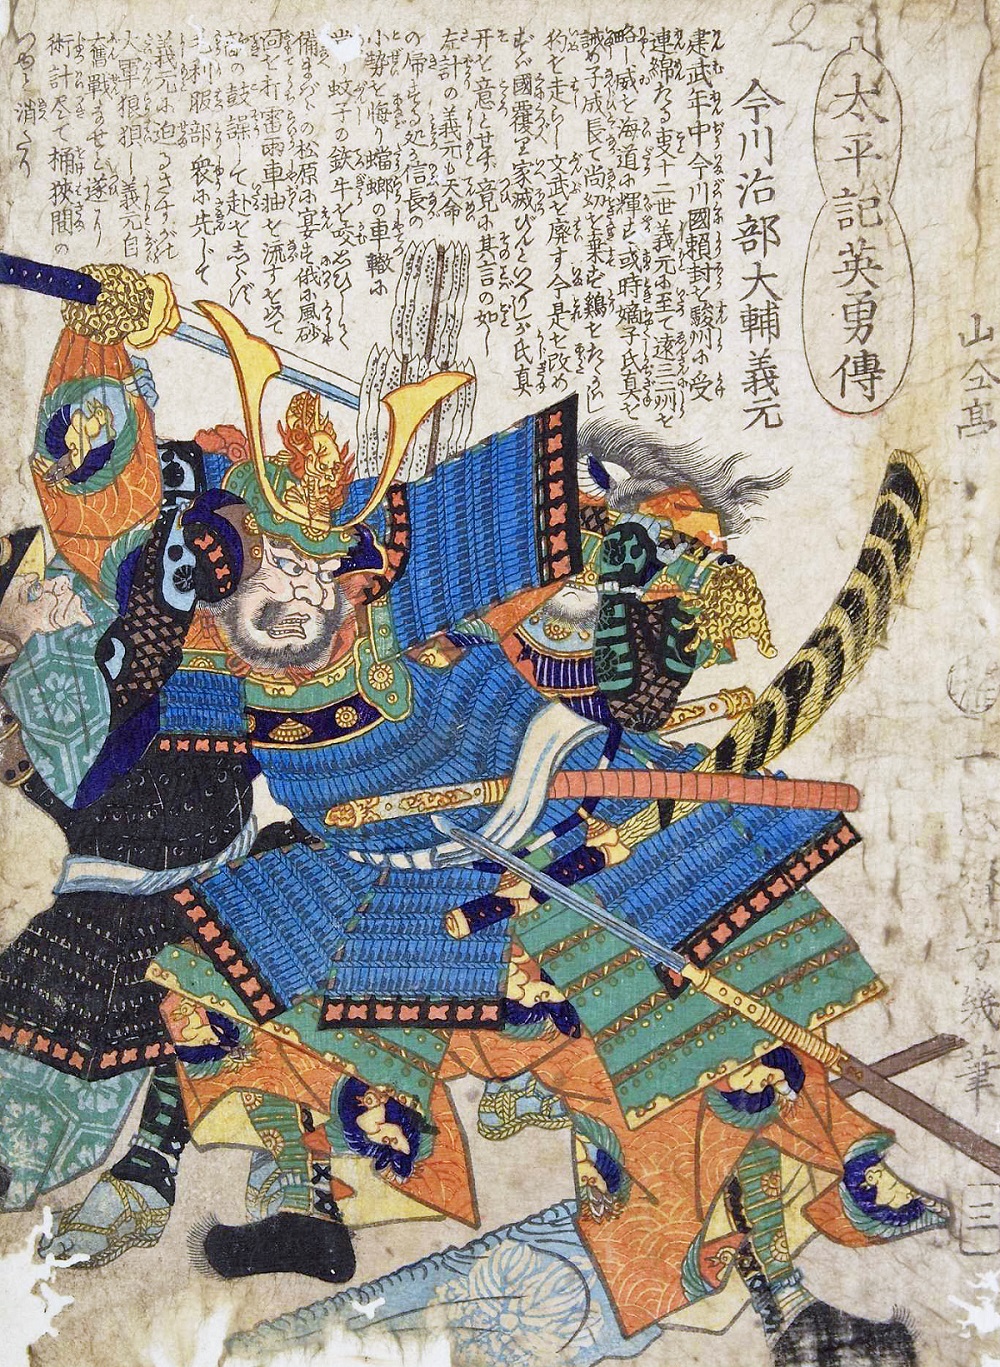 太平記英勇傳
今川治部大輔義元
建武年中今川國頼封を駿州に受
連綿たる事十二世義元に至て遠三二州を
略し威を海道に輝す或時嫡子氏真を
誡め子成長て尚幼を棄ず鷄をたゝかはし
狗を走らし文武を廃す今是を改め
ずば國覆り家滅びんといへりしが氏真
开を意とせず竟に其言の如し
左計の義元も天命
の帰する処か信長の
小勢を悔り蟷螂の車轍に
當り蚊子の鉄牛を咬
備まばらの松原に宴す俄に風砂
面を打雷雨車軸を流すを以て
敵の鼓譟して赴をしらず
毛利服部衆に先じて
義元に迫るさすが
大軍狼狽し義元自
奮戦ませど遂に
術計尽て桶狭間の
つゆと消たり
芳幾筆